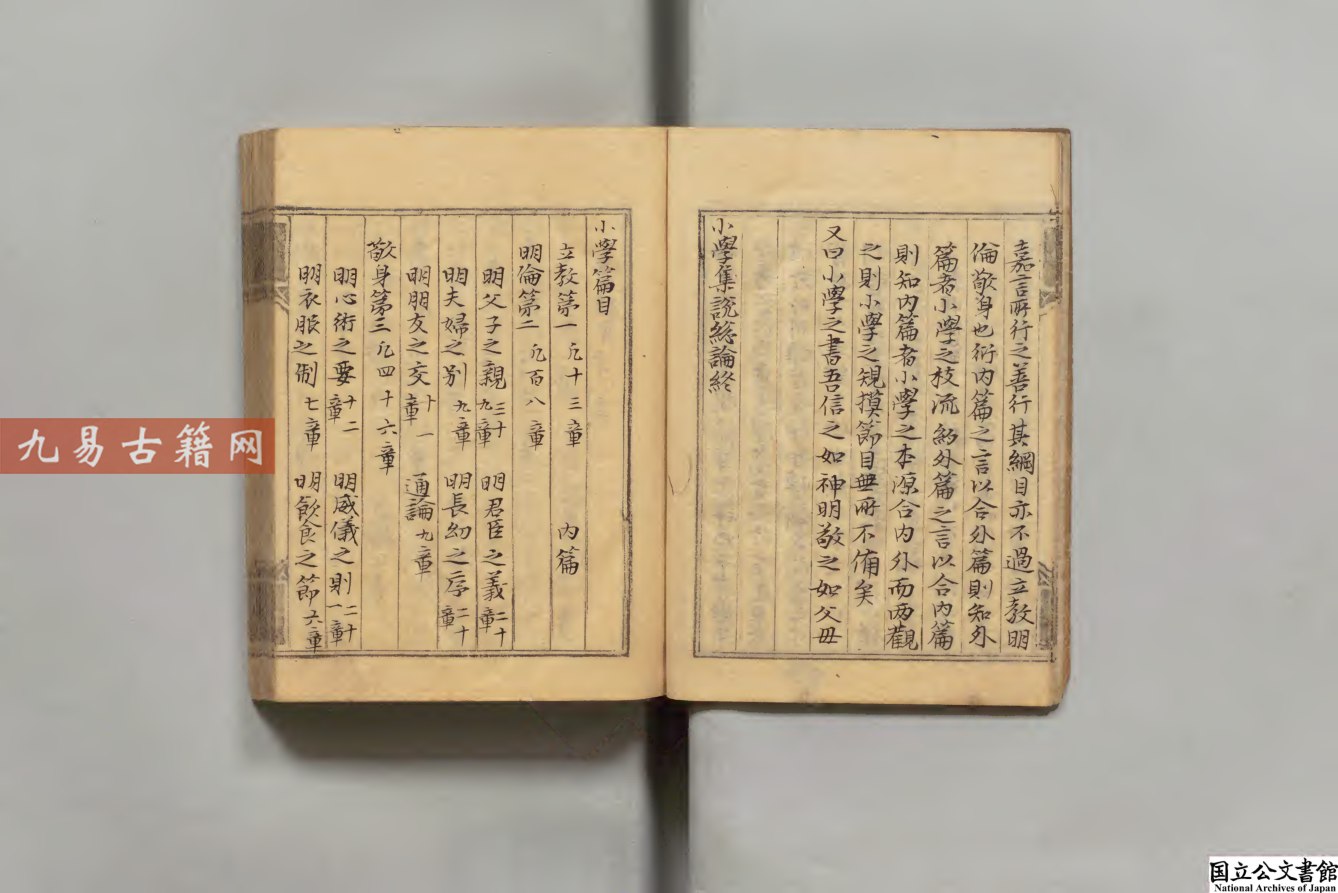 嘉言所行之善行其綱目亦不過立教明
倫敬身也衍內篇之言以合外篇則知外
篇者小學之枝流約外篇之言以合內篇
則知內篇者小學之本源合內外而兩觀
之則小學之規摸節目無所不備矣
又曰小學之書吾信之如神明敬之如父母
小學集說総論終
小學篇目
立教第一 凡十三章 內篇
明倫第二 凡百八章
明父子之親 三十九章 明君臣之義 二十章
明夫婦之別 九章 明長幼之序 二十章
明朋友之交 十一章 通論 九章
敬身第三 凡四十六章
明心術之要 十二章 明威儀之則 二十一章
明衣服之制 七章 明飲食之節 六章
九易古籍网
国立公文書館
National Archives of Japan